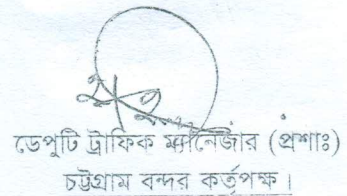 ডেপুটি ট্রাফিক ম্যানেজার (প্রশাঃ)
চট্টগ্রাম বন্দর কর্তৃপক্ষ।